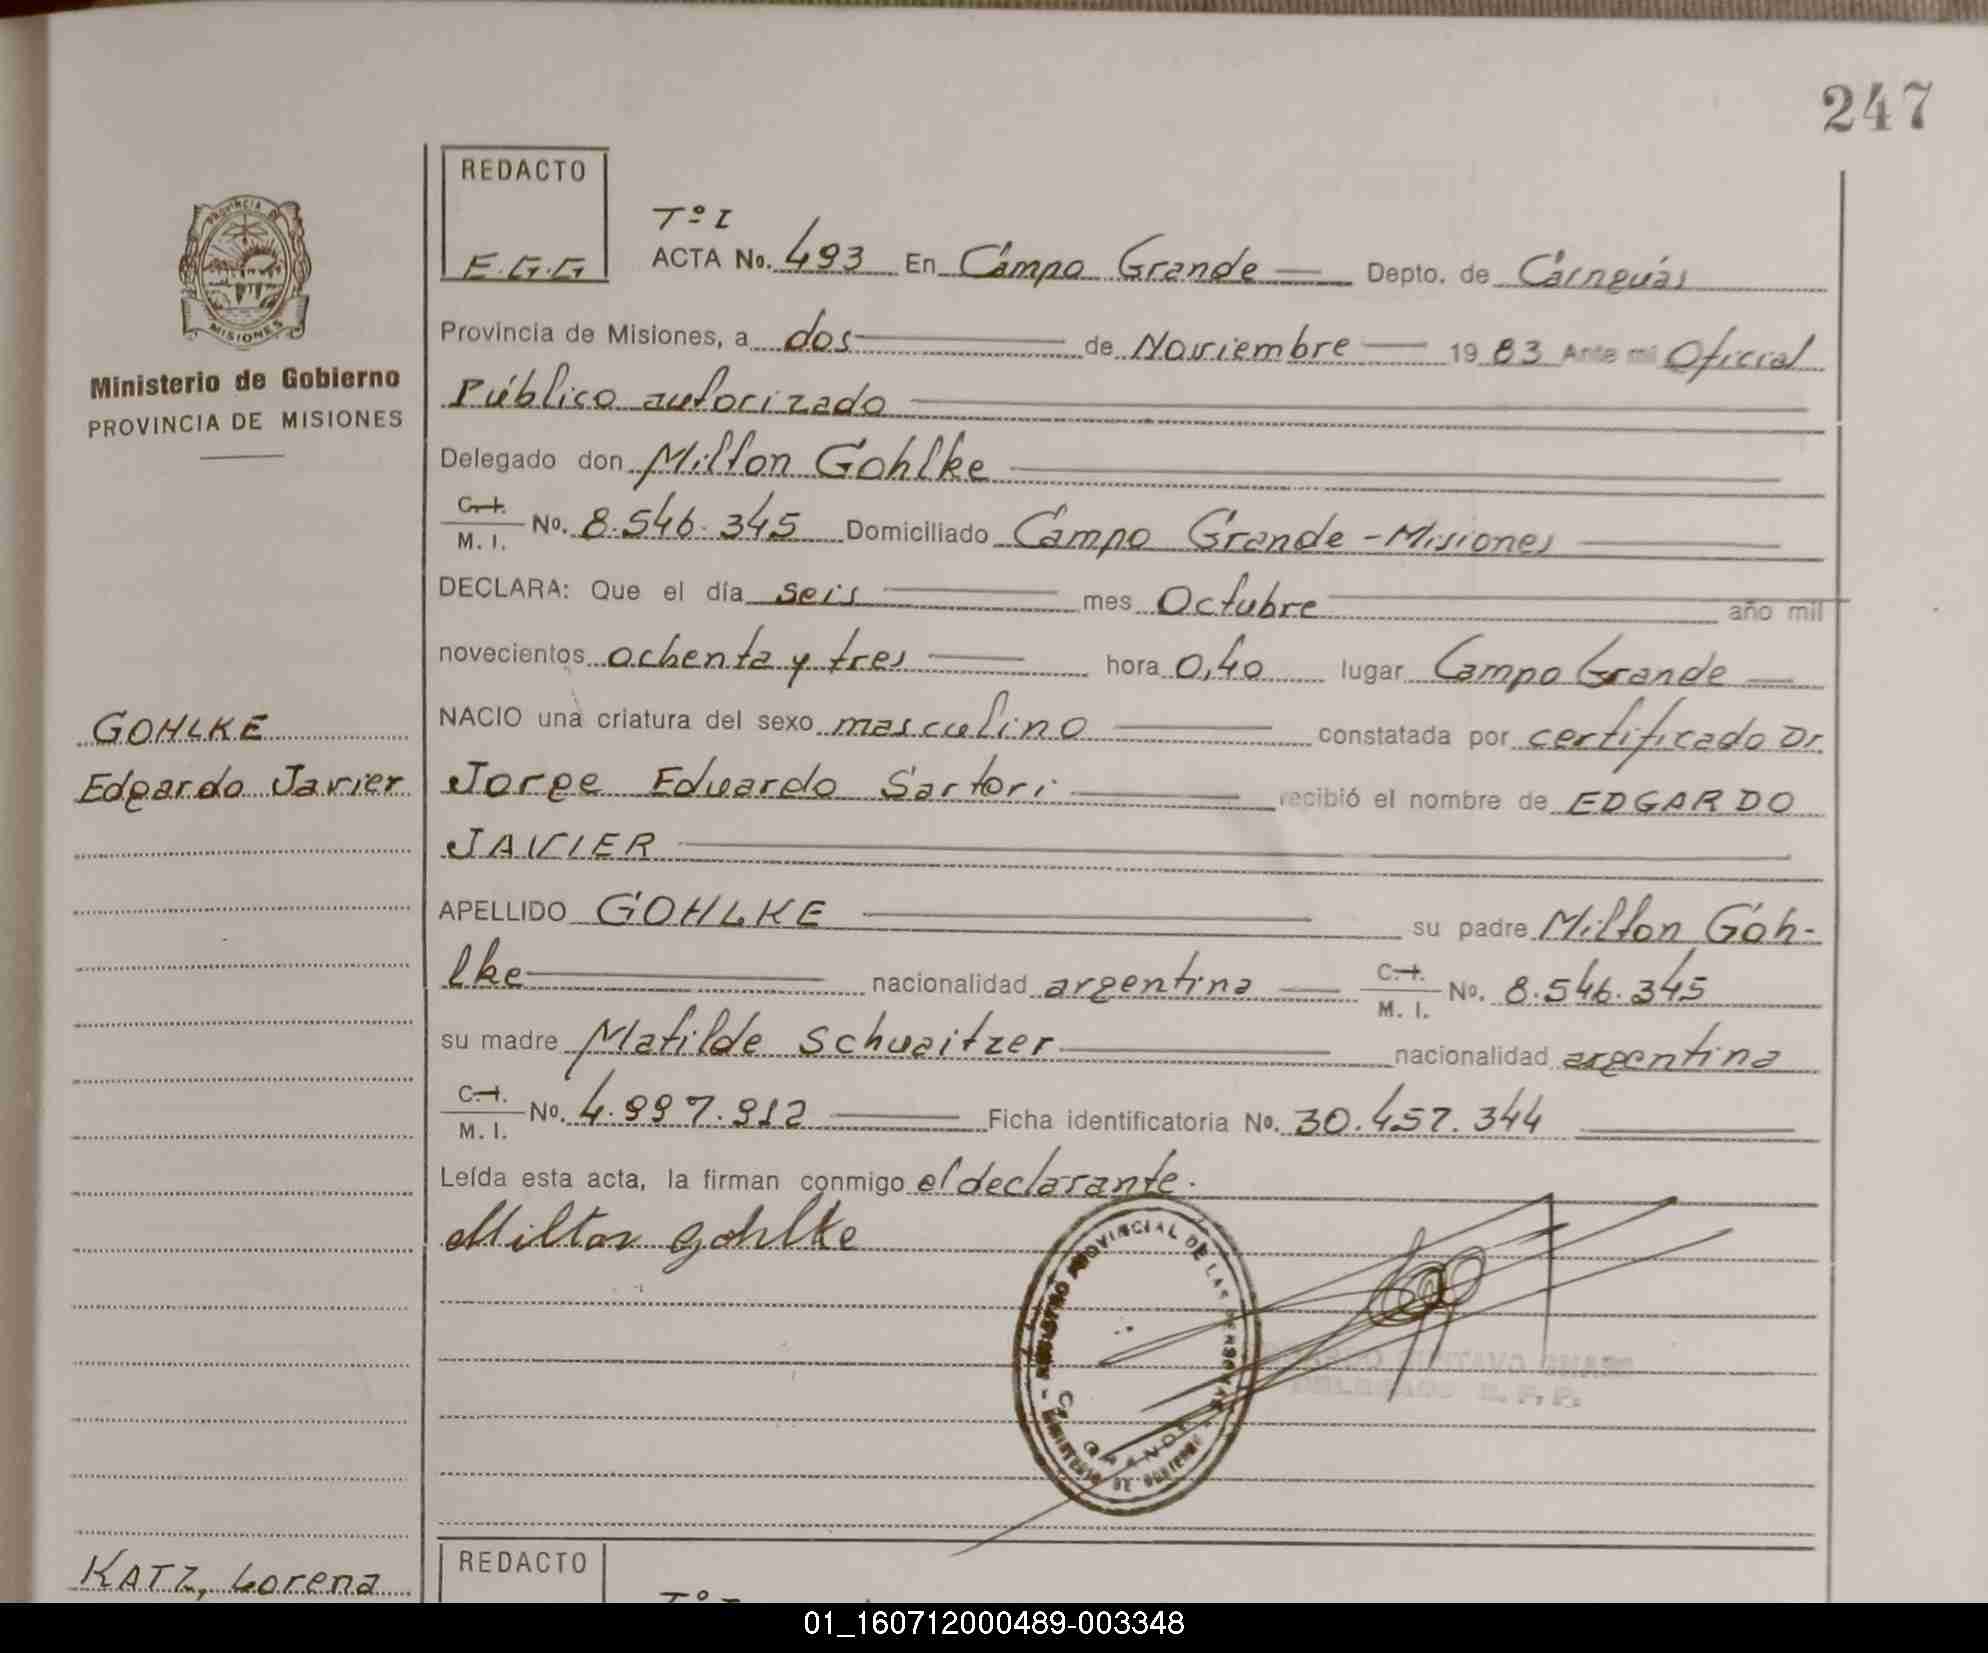 247
REDACTO
E.G.G
PROVINCIA DE
MISIONES
Ministerio de Gobierno
PROVINCIA DE MISIONES
Tº I
ACTA No. 493 En Campo Grande Depto. de Cainguás
Provincia de Misiones, a dos de Noviembre 1983 Ante mi Oficial
Público autorizado
Delegado don Milton Gohlke
C.I. M. I. No. 8.546.345 Domiciliado Campo Grande - Misiones
DECLARA: Que el día seis mes Octubre año mil
novecientos ochenta y tres hora 0,40 lugar Campo Grande
NACIO una criatura del sexo masculino constatada por certificado Dr.
Jorge Eduardo Sartori recibió el nombre de EDGARDO
JAVIER
APELLIDO GOHLKE su padre Milton Goh-
lke nacionalidad argentina C.I. M. I. No. 8.546.345
su madre Matilde Schwaitzer nacionalidad argentina
C.I. M. I. No. 4.997.912 Ficha identificatoria No. 30.457.344
Leída esta acta, la firman conmigo el declarante.
Milton Gohlke
REGISTRO PROVINCIAL DE LAS PERSONAS
MINISTERIO DE GOBIERNO
GUSTAVO
DELEGADO R. P. P.
GOHLKE
Edgardo Javier
KATZ, Lorena
REDACTO
01_160712000489-003348